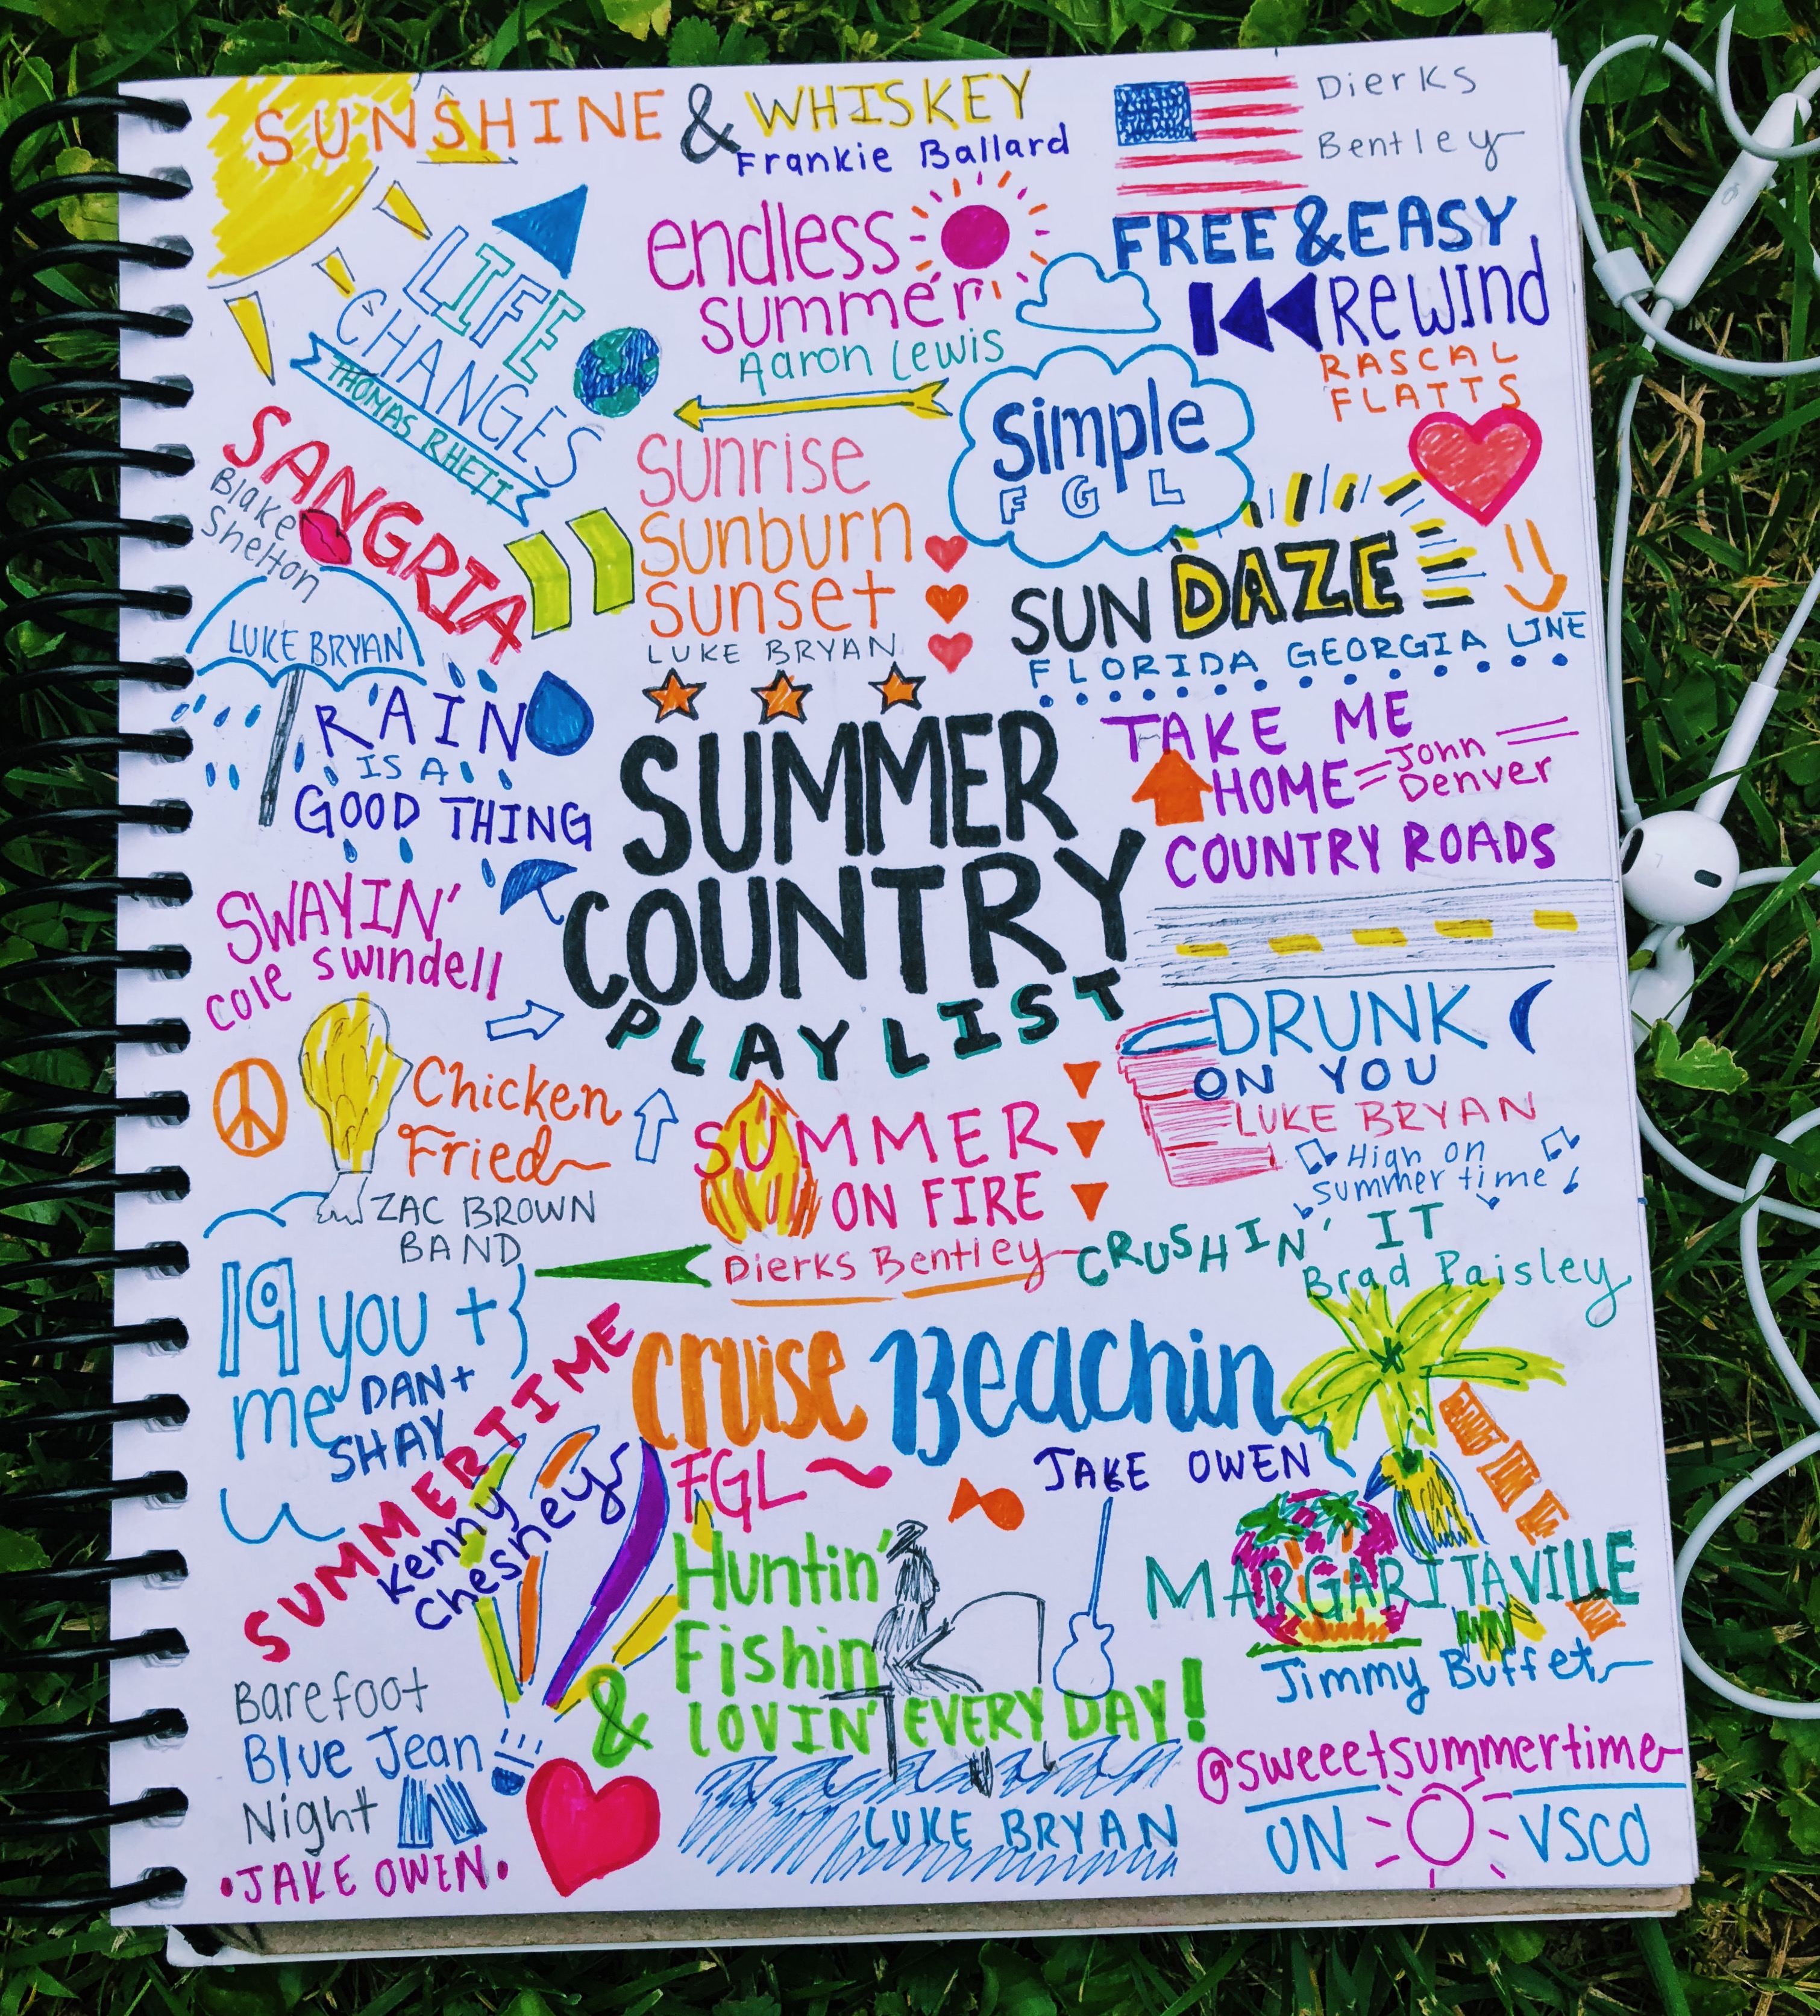 SUNSHINE & WHISKEY
Frankie Ballard
Dierks
Bentley
FREE & EASY
LIFE
CHANGES
THOMAS RHETT
endless
summer
Aaron Lewis
REWIND
RASCAL
FLATTS
SANGRIA
Blake
Shelton
sunrise
sunburn
sunset
LUKE BRYAN
simple
FGL
SUN DAZE
FLORIDA GEORGIA LINE
LUKE BRYAN
RAIN
IS A
GOOD THING
SUMMER
COUNTRY
PLAYLIST
TAKE ME
HOME
John
Denver
COUNTRY ROADS
SWAYIN'
cole swindell
DRUNK
ON YOU
LUKE BRYAN
High on
summer time
Chicken
Fried
ZAC BROWN
BAND
SUMMER
ON FIRE
Dierks Bentley
CRUSHIN' IT
Brad Paisley
19 you +
me
DAN +
SHAY
SUMMERTIME
Kenny
Chesney
cruise
FGL
Beachin
JAKE OWEN
Huntin'
Fishin
& LOVIN' EVERY DAY!
LUKE BRYAN
MARGARITAVILLE
Jimmy Buffet
Barefoot
Blue Jean
Night
JAKE OWEN
@sweeetsummertime
ON VSCO